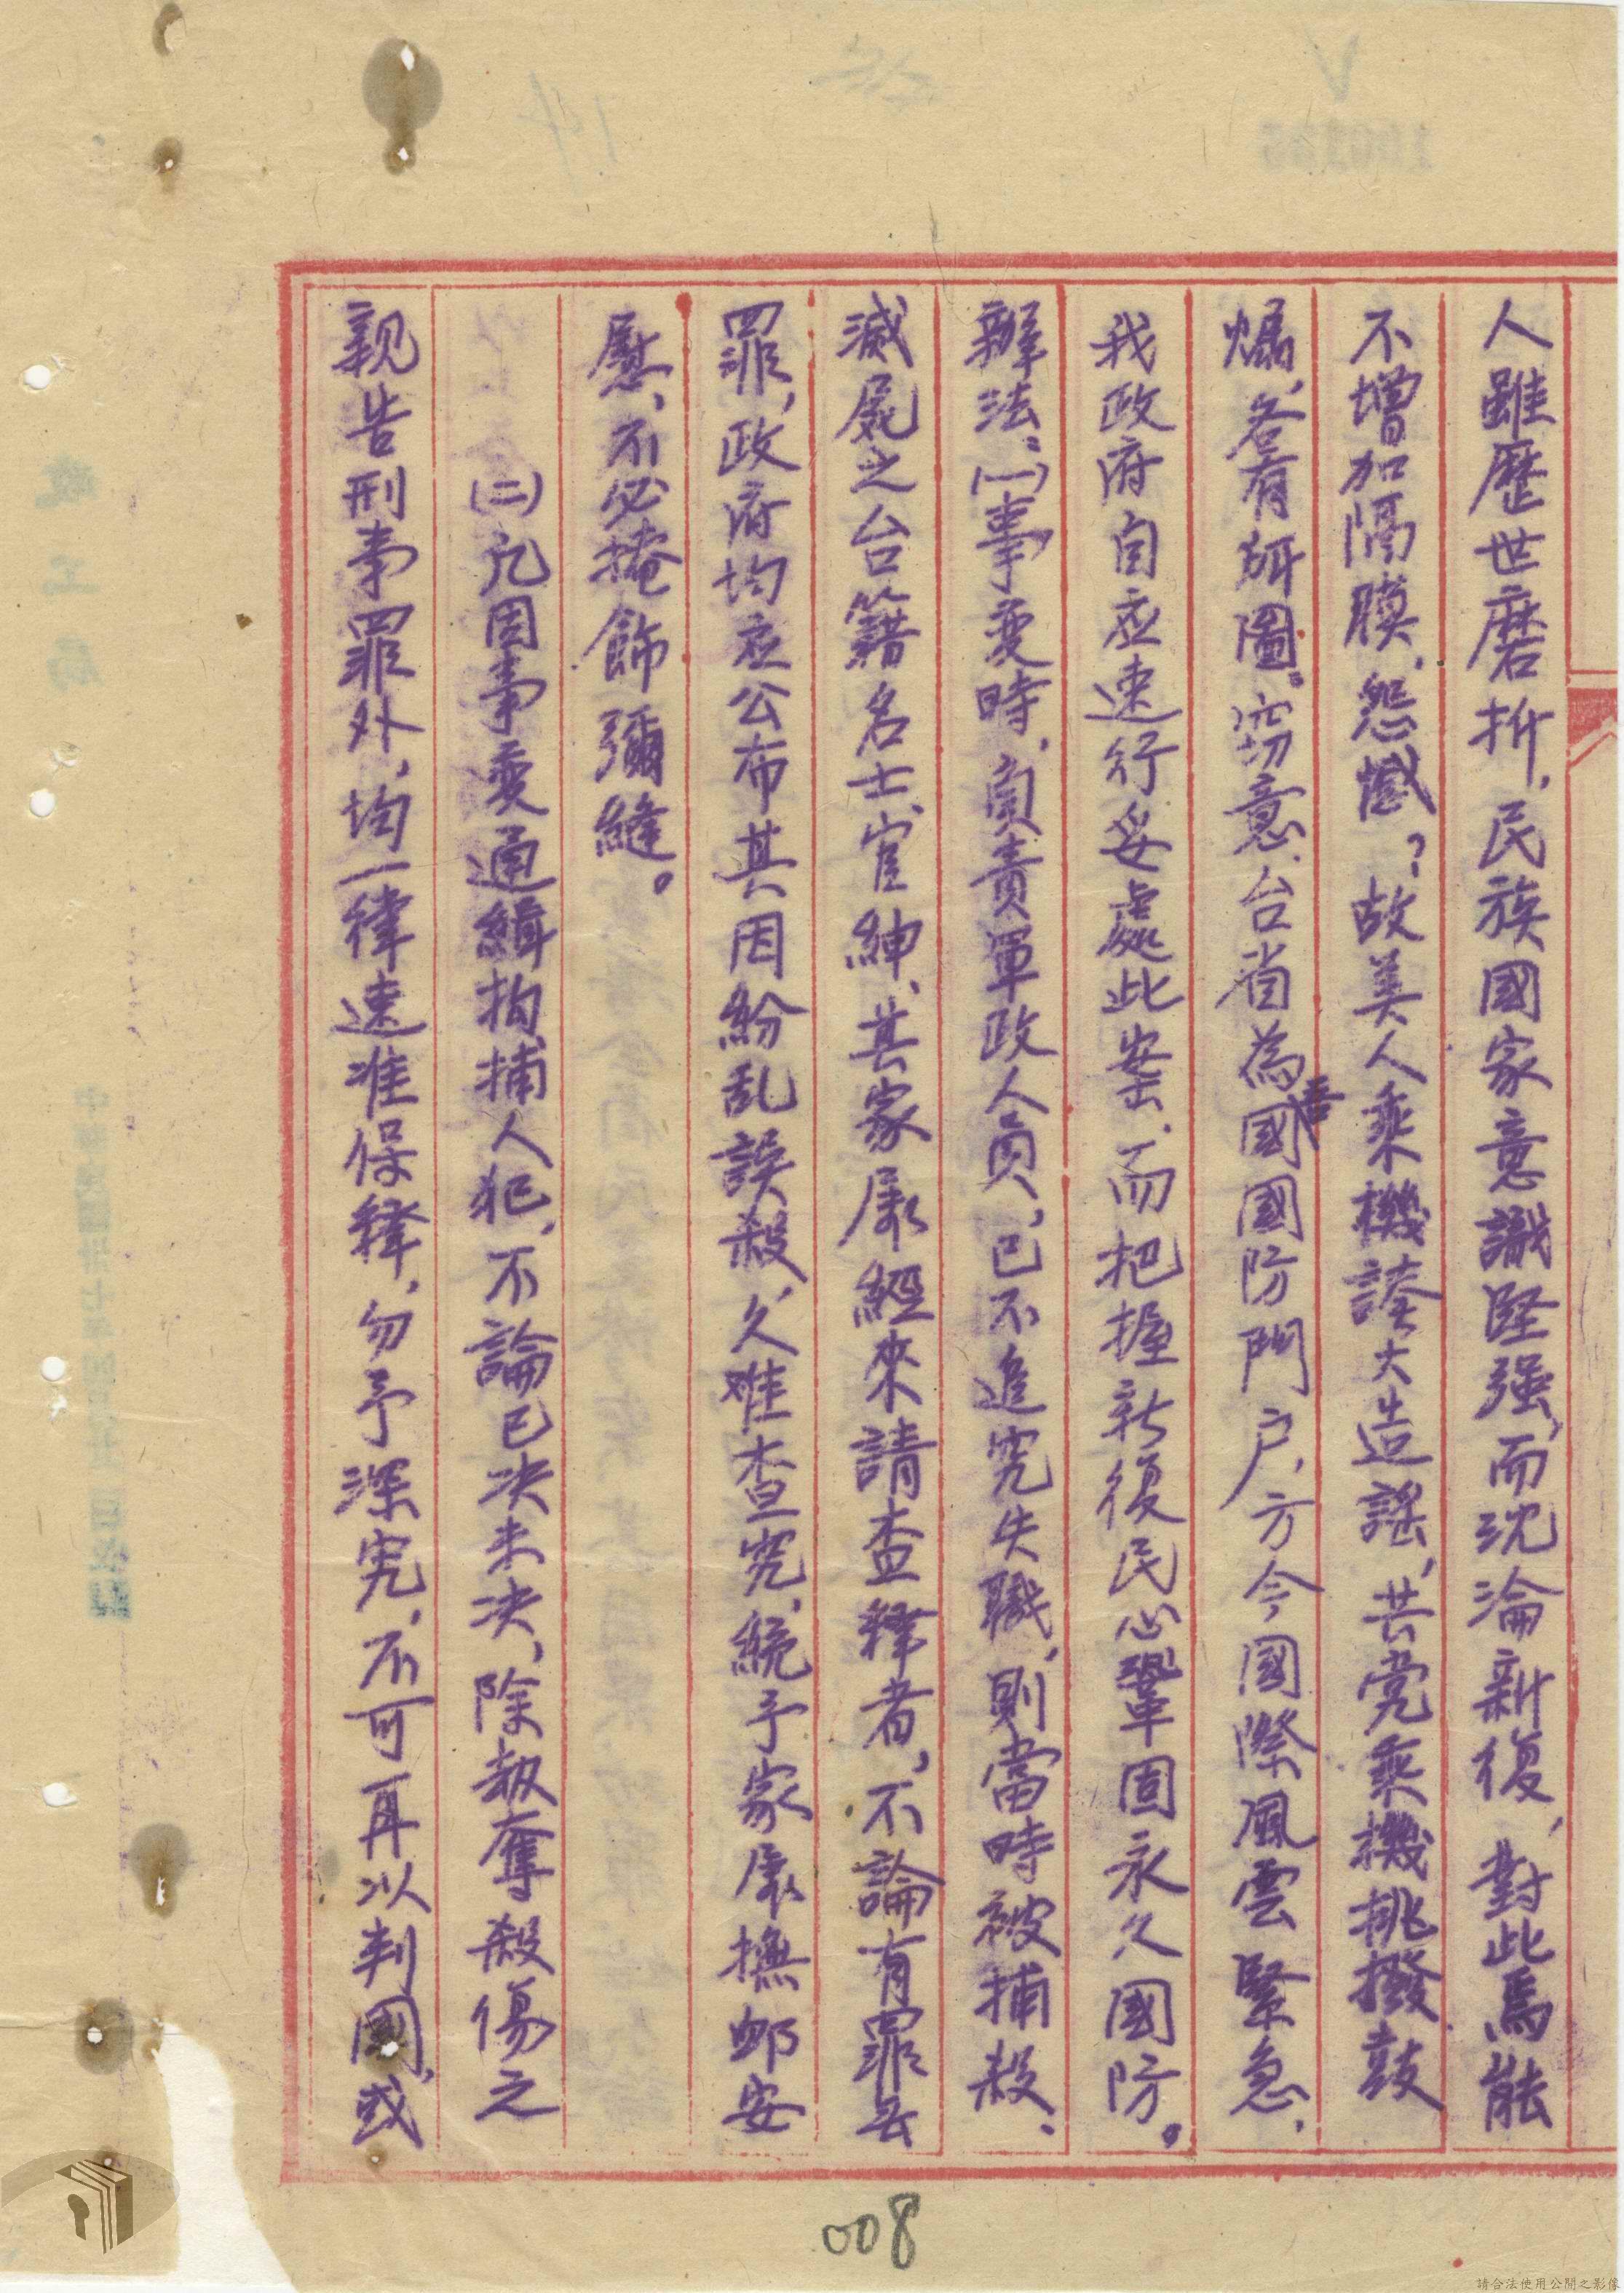 人雖歷世磨折，民族國家意識堅强，而沈淪新復，對此焉能
不增加隔膜、怨憾？故美人乘機誇大造謠，共党乘機挑撥鼓
煽，各有所圖。窃意、台省為吾國國防門户，方今國際風雲緊急，
我政府自应速行妥處此案、而把握新復民心鞏固永久國防。
辦法：㈠事变時，負責軍政人員，已不追究失職，則當時被捕殺、
滅屍之台籍名士、官紳、其家屬經來請查釋者，不論有罪無
罪，政府均应公布其因紛乱誤殺、久难查究，統予家屬撫卹安
慰、不必掩飾彌縫。
㈡凡因事变通緝拘捕人犯，不論已决未决，除劫奪殺傷之
親告刑事罪外，均一律速准保釋，勿予深究，不可再以判國，或
008
請合法使用公開之影像